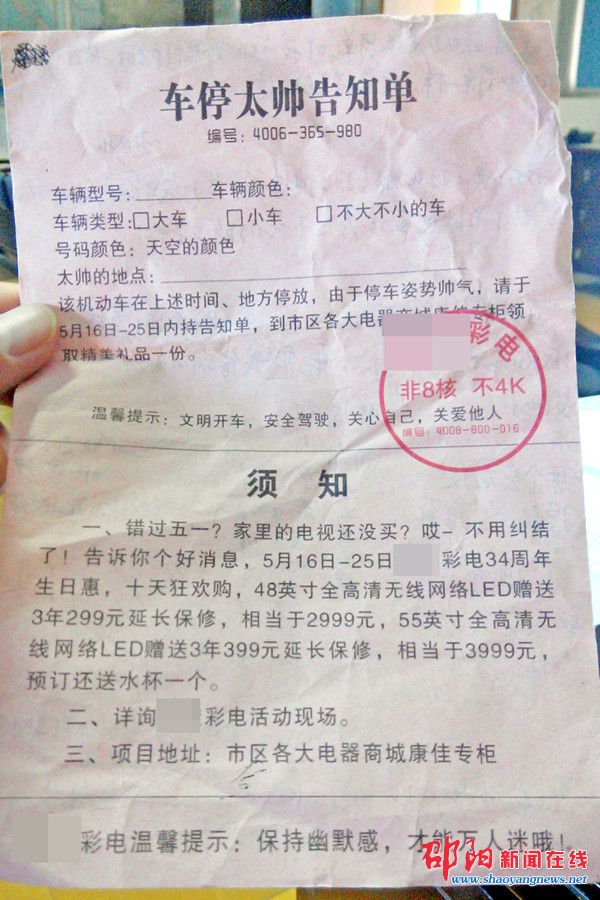 车停太帅告知单
编号：4006-365-980
车辆型号：________车辆颜色：
车辆类型：□大车 □小车 □不大不小的车
号码颜色：天空的颜色
太帅的地点：
该机动车在上述时间、地方停放，由于停车姿势帅气，请于
5月16日-25日内持告知单，到市区各大电器商城康佳专柜领
取精美礼品一份。
彩电
非8核 不4K
编号：4008-800-016
温馨提示：文明开车，安全驾驶，关心自己，关爱他人
须 知
一、错过五一？家里的电视还没买？哎- 不用纠结
了！告诉你个好消息，5月16日-25日 彩电34周年
生日惠，十天狂欢购，48英寸全高清无线网络LED赠送
3年299元延长保修，相当于2999元，55英寸全高清无
线网络LED赠送3年399元延长保修，相当于3999元，
预订还送水杯一个。
二、详询 彩电活动现场。
三、项目地址：市区各大电器商城康佳专柜
彩电温馨提示：保持幽默感，才能万人迷哦！
邵阳新闻在线
www.shaoyangnews.net